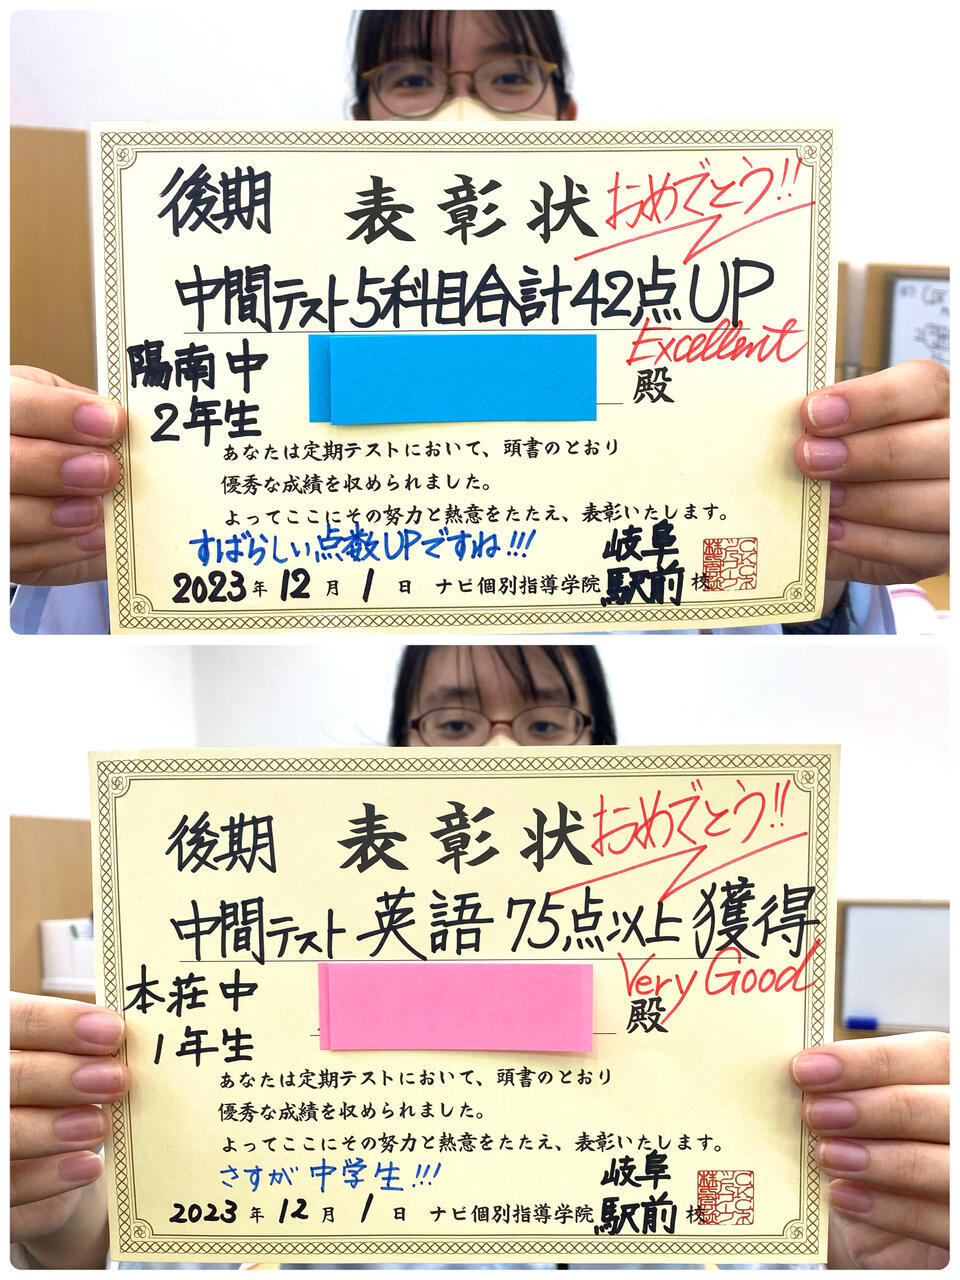 後期 表彰状 おめでとう!!
中間テスト5科目合計42点UP
Excellent
陽南中
2年生
殿
あなたは定期テストにおいて、頭書のとおり
優秀な成績を収められました。
よってここにその努力と熱意をたたえ、表彰いたします。
すばらしい点数UPですね!!!
2023年12月1日 ナビ個別指導学院 岐阜駅前校
後期 表彰状 おめでとう!!
中間テスト 英語 75点以上 獲得
Very Good
本荘中
1年生
殿
あなたは定期テストにおいて、頭書のとおり
優秀な成績を収められました。
よってここにその努力と熱意をたたえ、表彰いたします。
さすが中学生!!!
2023年12月1日 ナビ個別指導学院 岐阜駅前校